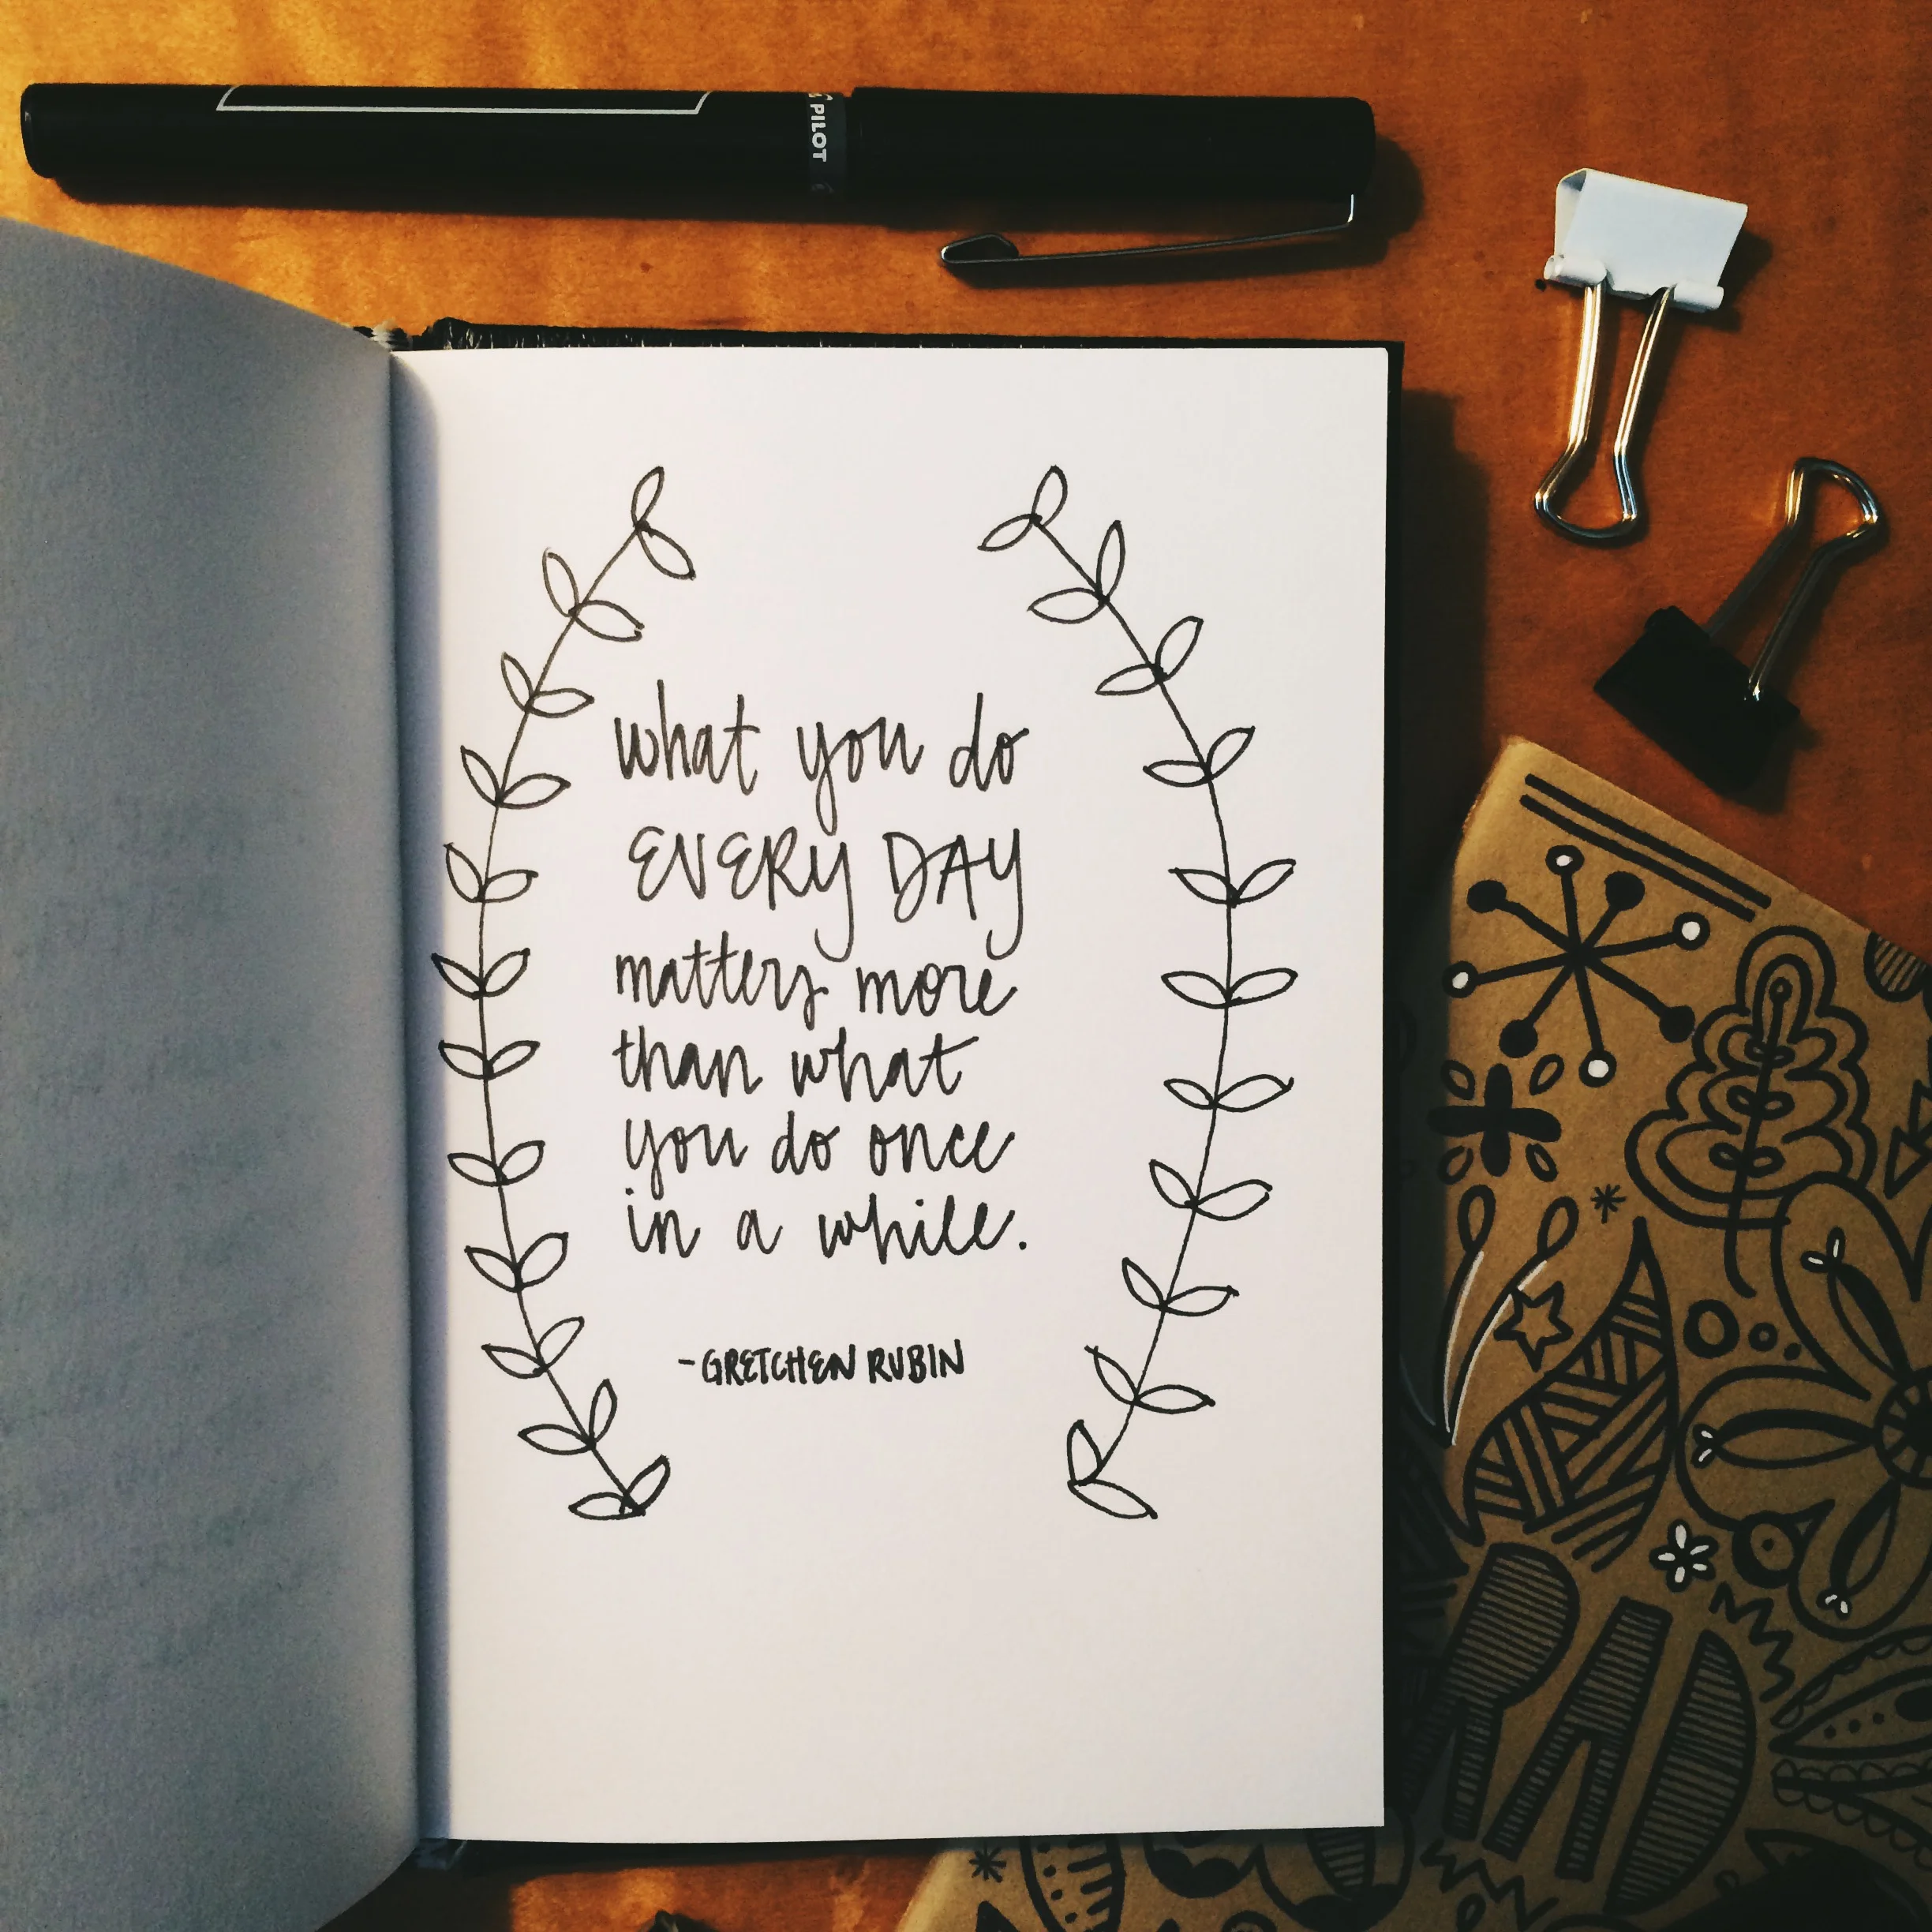 PILOT
what you do
EVERY DAY
matters more
than what
you do once
in a while.
-GRETCHEN RUBIN
RAD